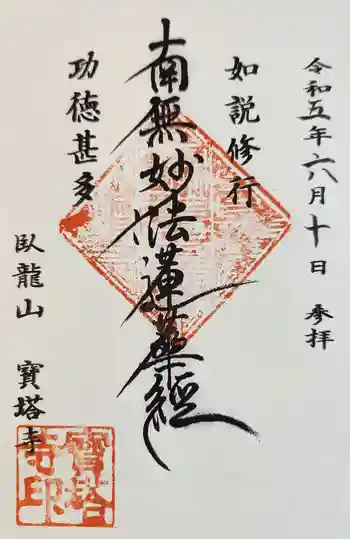 令和五年六月十日　参拝
如説修行
南無妙法蓮華経
功徳甚多
臥龍山　寳塔寺
寳塔寺印